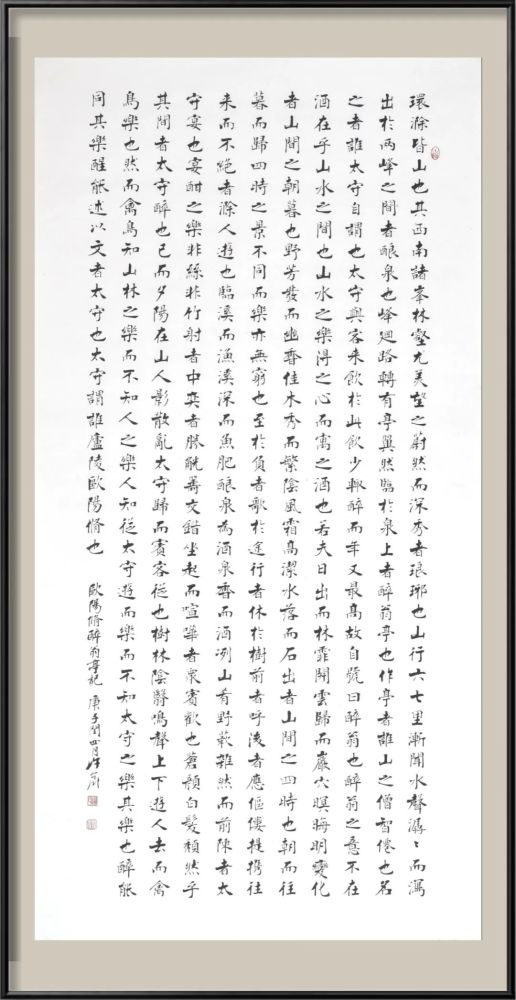 環滁皆山也其西南諸峯林壑尤美望之蔚然而深秀者琅琊也山行六七里漸聞水聲潺〻而瀉
出於兩峰之間者釀泉也峰迴路轉有亭翼然臨於泉上者醉翁亭也作亭者誰山之僧智僊也名
之者誰太守自謂也太守與客来飲於此飲少輒醉而年又最高故自號曰醉翁也醉翁之意不在
酒在乎山水之間也山水之樂得之心而寓之酒也若夫日出而林霏開雲歸而巖穴暝晦明變化
者山間之朝暮也野芳發而幽香佳木秀而繁陰風霜高潔水落而石出者山間之四時也朝而往
暮而歸四時之景不同而樂亦無窮也至於負者歌於途行者休於樹前者呼後者應傴僂提携往
来而不絕者滁人遊也臨溪而漁溪深而魚肥釀泉為酒泉香而酒冽山肴野蔌雜然而前陳者太
守宴也宴酣之樂非絲非竹射者中奕者勝觥籌交錯坐起而喧嘩者眾賓歡也蒼顏白髮頹然乎
其間者太守醉也已而夕陽在山人影散亂太守歸而賓客從也樹林陰翳鳴聲上下遊人去而禽
鳥樂也然而禽鳥知山林之樂而不知人之樂人知從太守遊而樂而不知太守之樂其樂也醉能
同其樂醒能述以文者太守也太守謂誰廬陵歐陽脩也 歐陽脩醉翁亭記 庚子閏四月